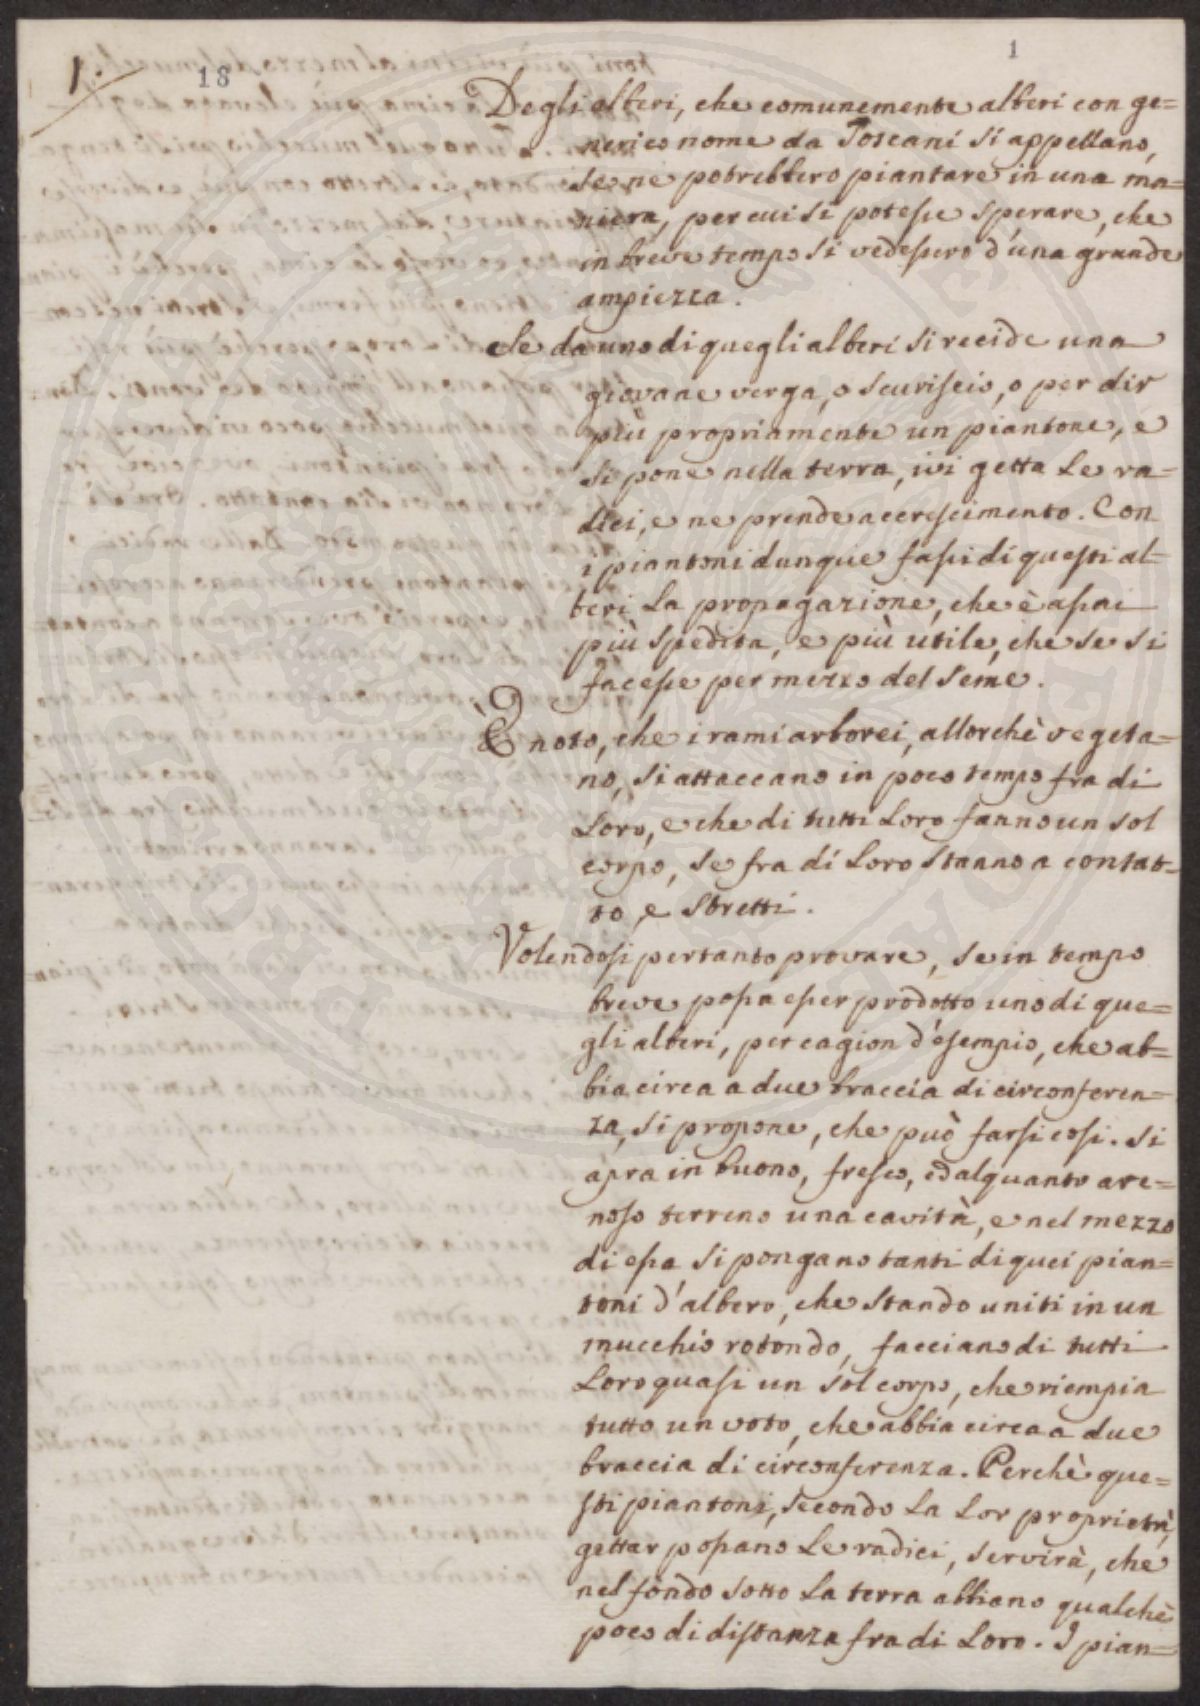 1.
18
1
Degli alberi, che comunemente alberi con ge=
nerico nome da Toscani si appellano,
se ne potrebbero piantare in una ma=
niera, per cui si potesse sperare, che
in breve tempo si vedessero d'una grande
ampiezza.
Se da uno di quegli alberi si recide una
giovane verga, o scuriscio, o per dir
più propriamente un piantone, e
si pone nella terra, ivi getta le ra=
dici, e ne prende accrescimento. Con
i piantoni dunque fassi di questi al=
beri la propagazione, che è assai
più spedita, e più utile, che se si
facesse per mezzo del seme.
È noto, che i rami arborei, allorchè vegeta=
no, si attaccano in poco tempo fra di
loro, e che di tutti loro fanno un sol
corpo, se fra di loro stanno a contat=
to, e stretti.
Volendosi pertanto provare, se in tempo
breve possa esser prodotto uno di que=
gli alberi, per cagion d'esempio, che ab=
bia circa a due braccia di circonferen=
za, si propone, che può farsi così. Si
apra in buono, fresco, ed alquanto are=
noso terreno una cavità, e nel mezzo
di essa si pongano tanti di quei pian=
toni d'albero, che stando uniti in un
mucchio rotondo, facciano di tutti
loro quasi un sol corpo, che riempia
tutto un voto, che abbia circa a due
braccia di circonferenza. Perchè que=
sti piantoni, secondo la lor proprietà,
gettar possano le radici, servirà, che
nel fondo sotto la terra abbiano qualchè
poco di distanza fra di loro. I pian=